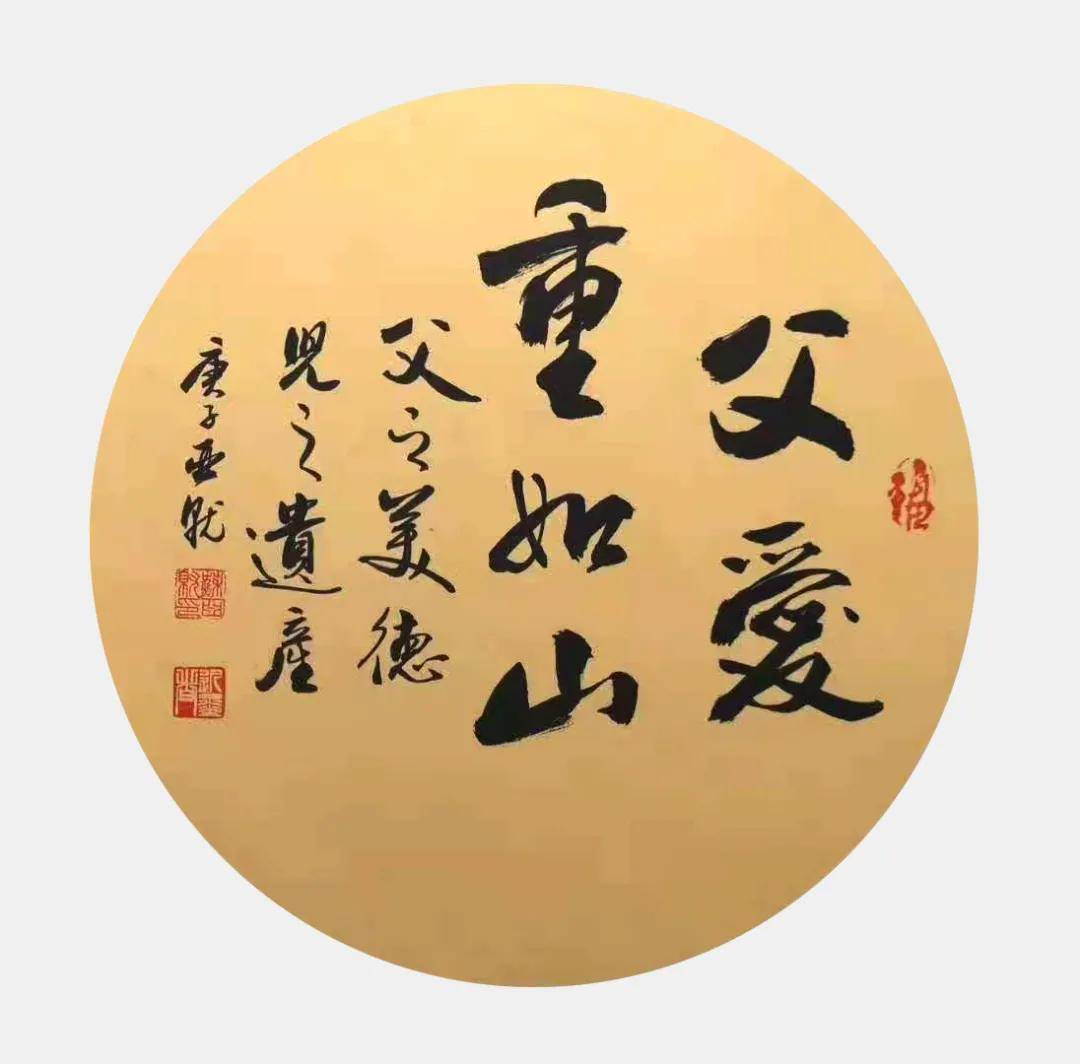 父愛
重如山
父之美德
兒之遺產
庚子亞